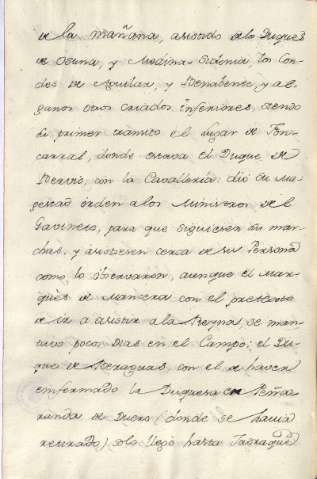 de la mañana, asistido de los Duques
de Osuna, y Medina Sidonia, los Con
des de Aguilar, y Benabente, y al
gunos otros criados inferiores, siendo
su primer transito el lugar de Fon
carral, donde estava el Duque de
Bervic, con la Cavalleria: dió su Ma-
gestad orden a los Ministros de el
Gavinete, para que siguiesen su mar
cha, y asistiesen cerca de su Persona
como lo observaron, aunque el Mar
ques de Mancera con el pretexto
de ir a asistir a la Reyna, se man
tuvo pocos dias en el Campo; el Du
que de Veraguas, con el de haver
enfermado la Duquesa en Peña
randa de Duero (donde se havia
retirado) solo llegó hasta Jadraque